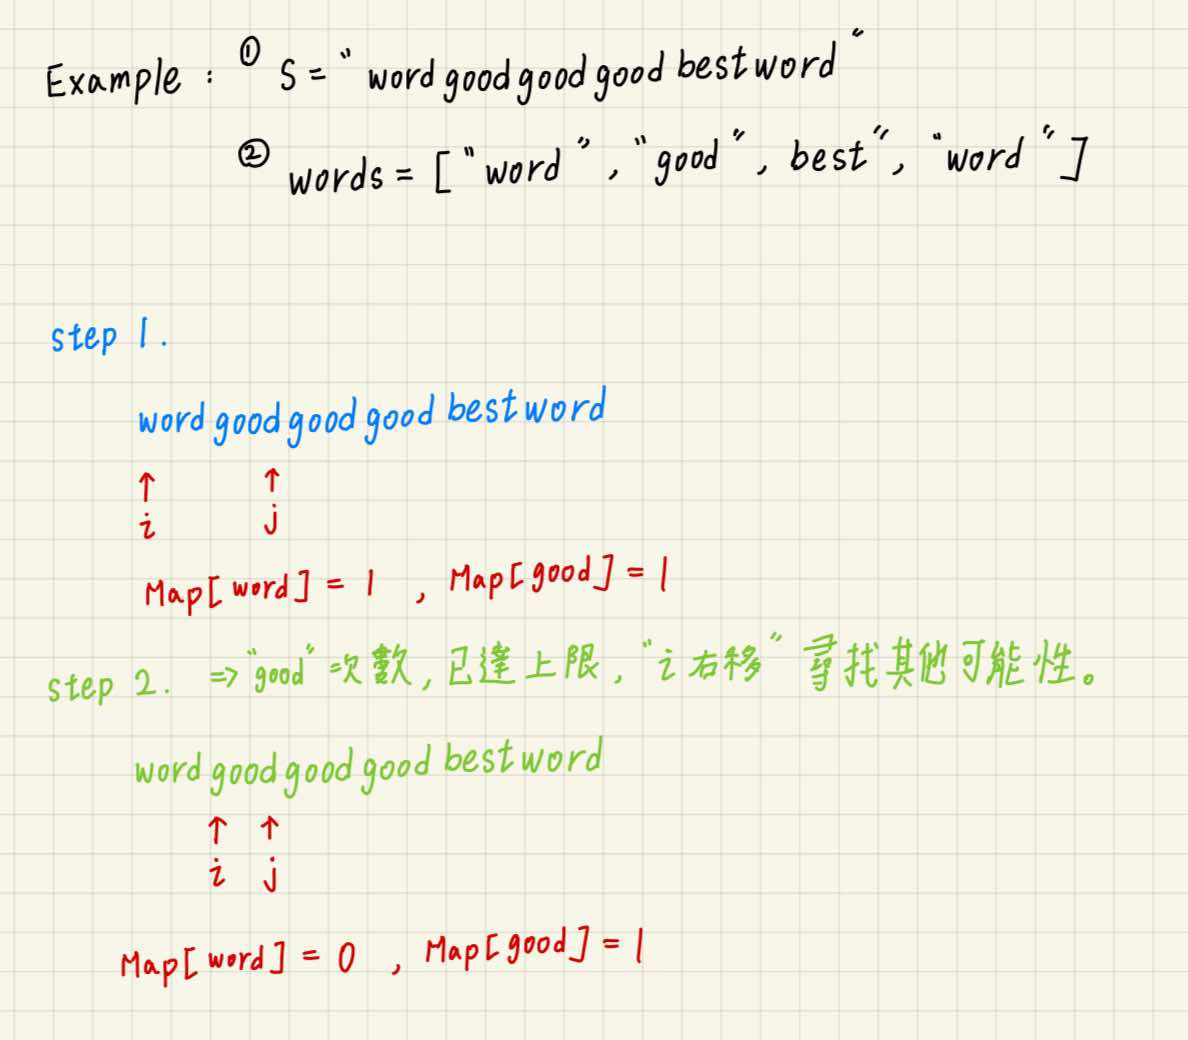 Example : ① S = " word good good good best word "
② words = [ "word ", "good ", best", "word " ]
step 1.
word good good good best word
↑ ↑
i j
Map[ word ] = 1 , Map[good] = 1
step 2. => "good" 次數, 已達上限, "i 右移" 尋找其他可能性。
word good good good best word
↑ ↑
i j
Map[ word ] = 0 , Map[good] = 1